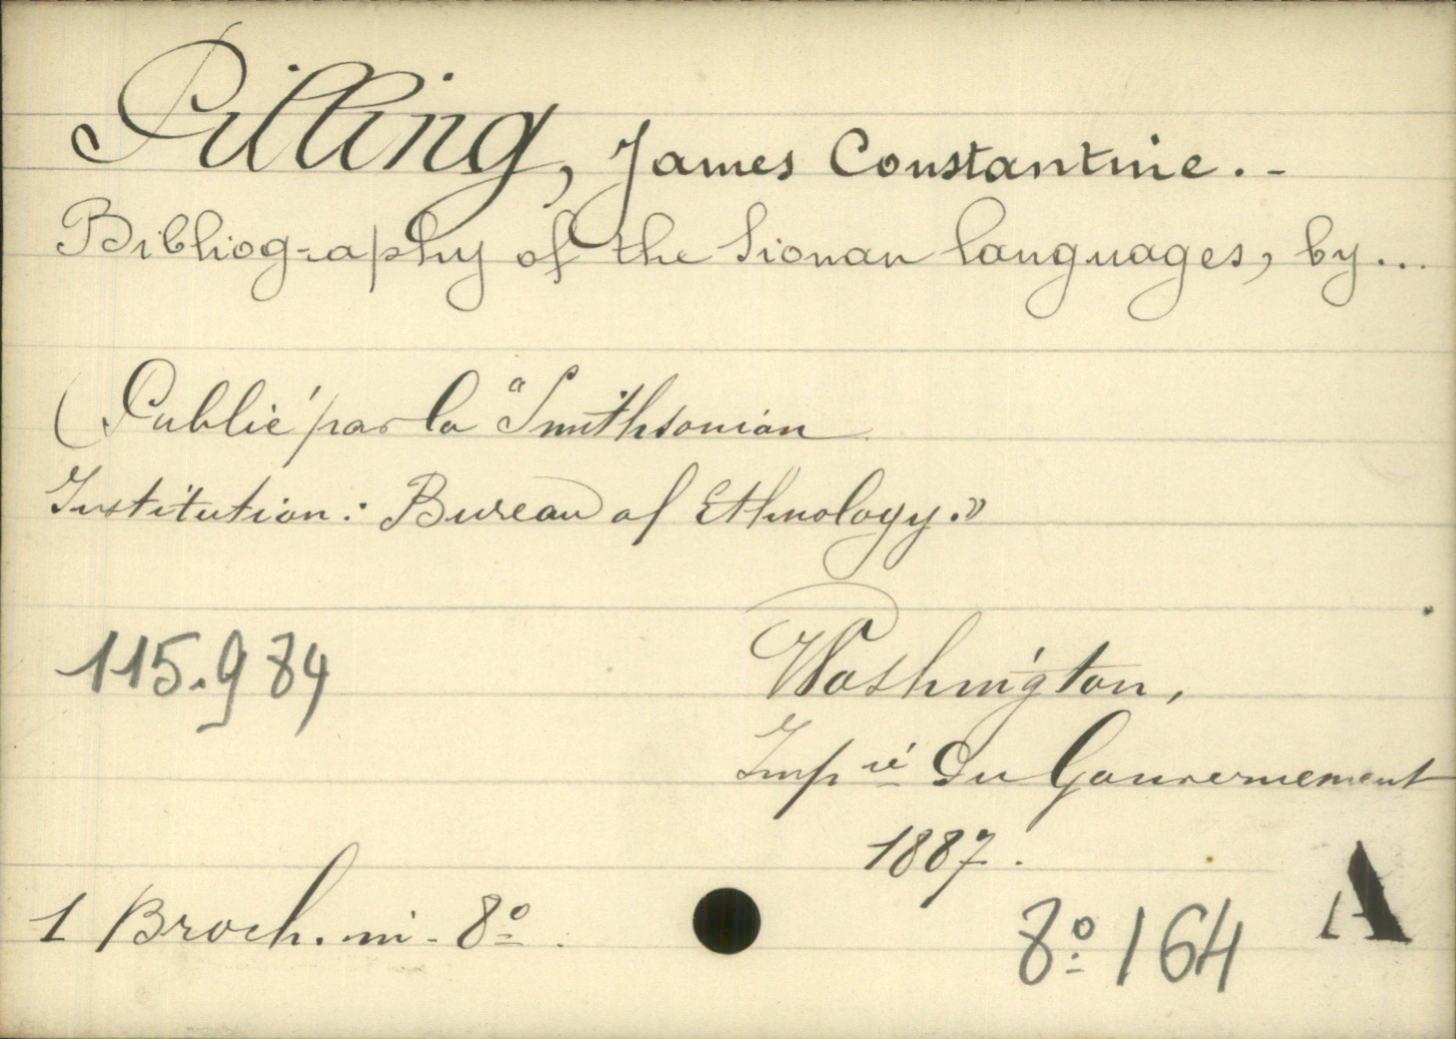 Pilling, James Constantine. -
Bibliography of the Siouan languages, by...
(Publié par la "Smithsonian
Institution: Bureau of Ethnology."
115.984
Washington,
Imp ié du Gouvernement
1887.
1 Broch. in-8º.
8º 164
A